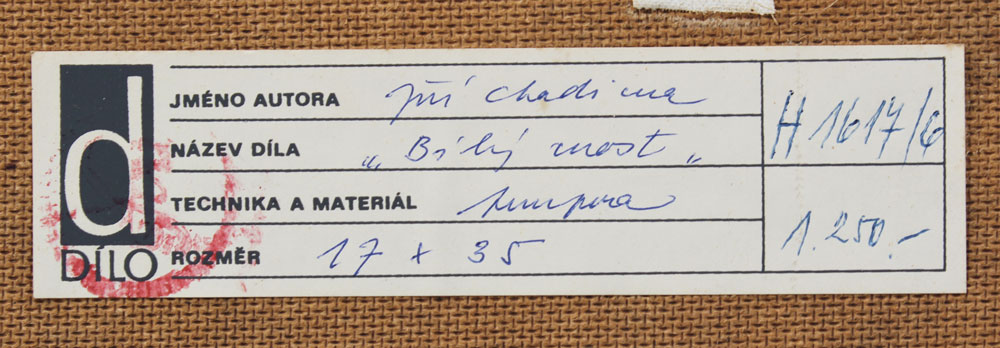 d
DÍLO
JMÉNO AUTORA Jiří Chadima
NÁZEV DÍLA „Bílý most„
TECHNIKA A MATERIÁL tempera
ROZMĚR 17 x 35
H 1617/6
1.250.-